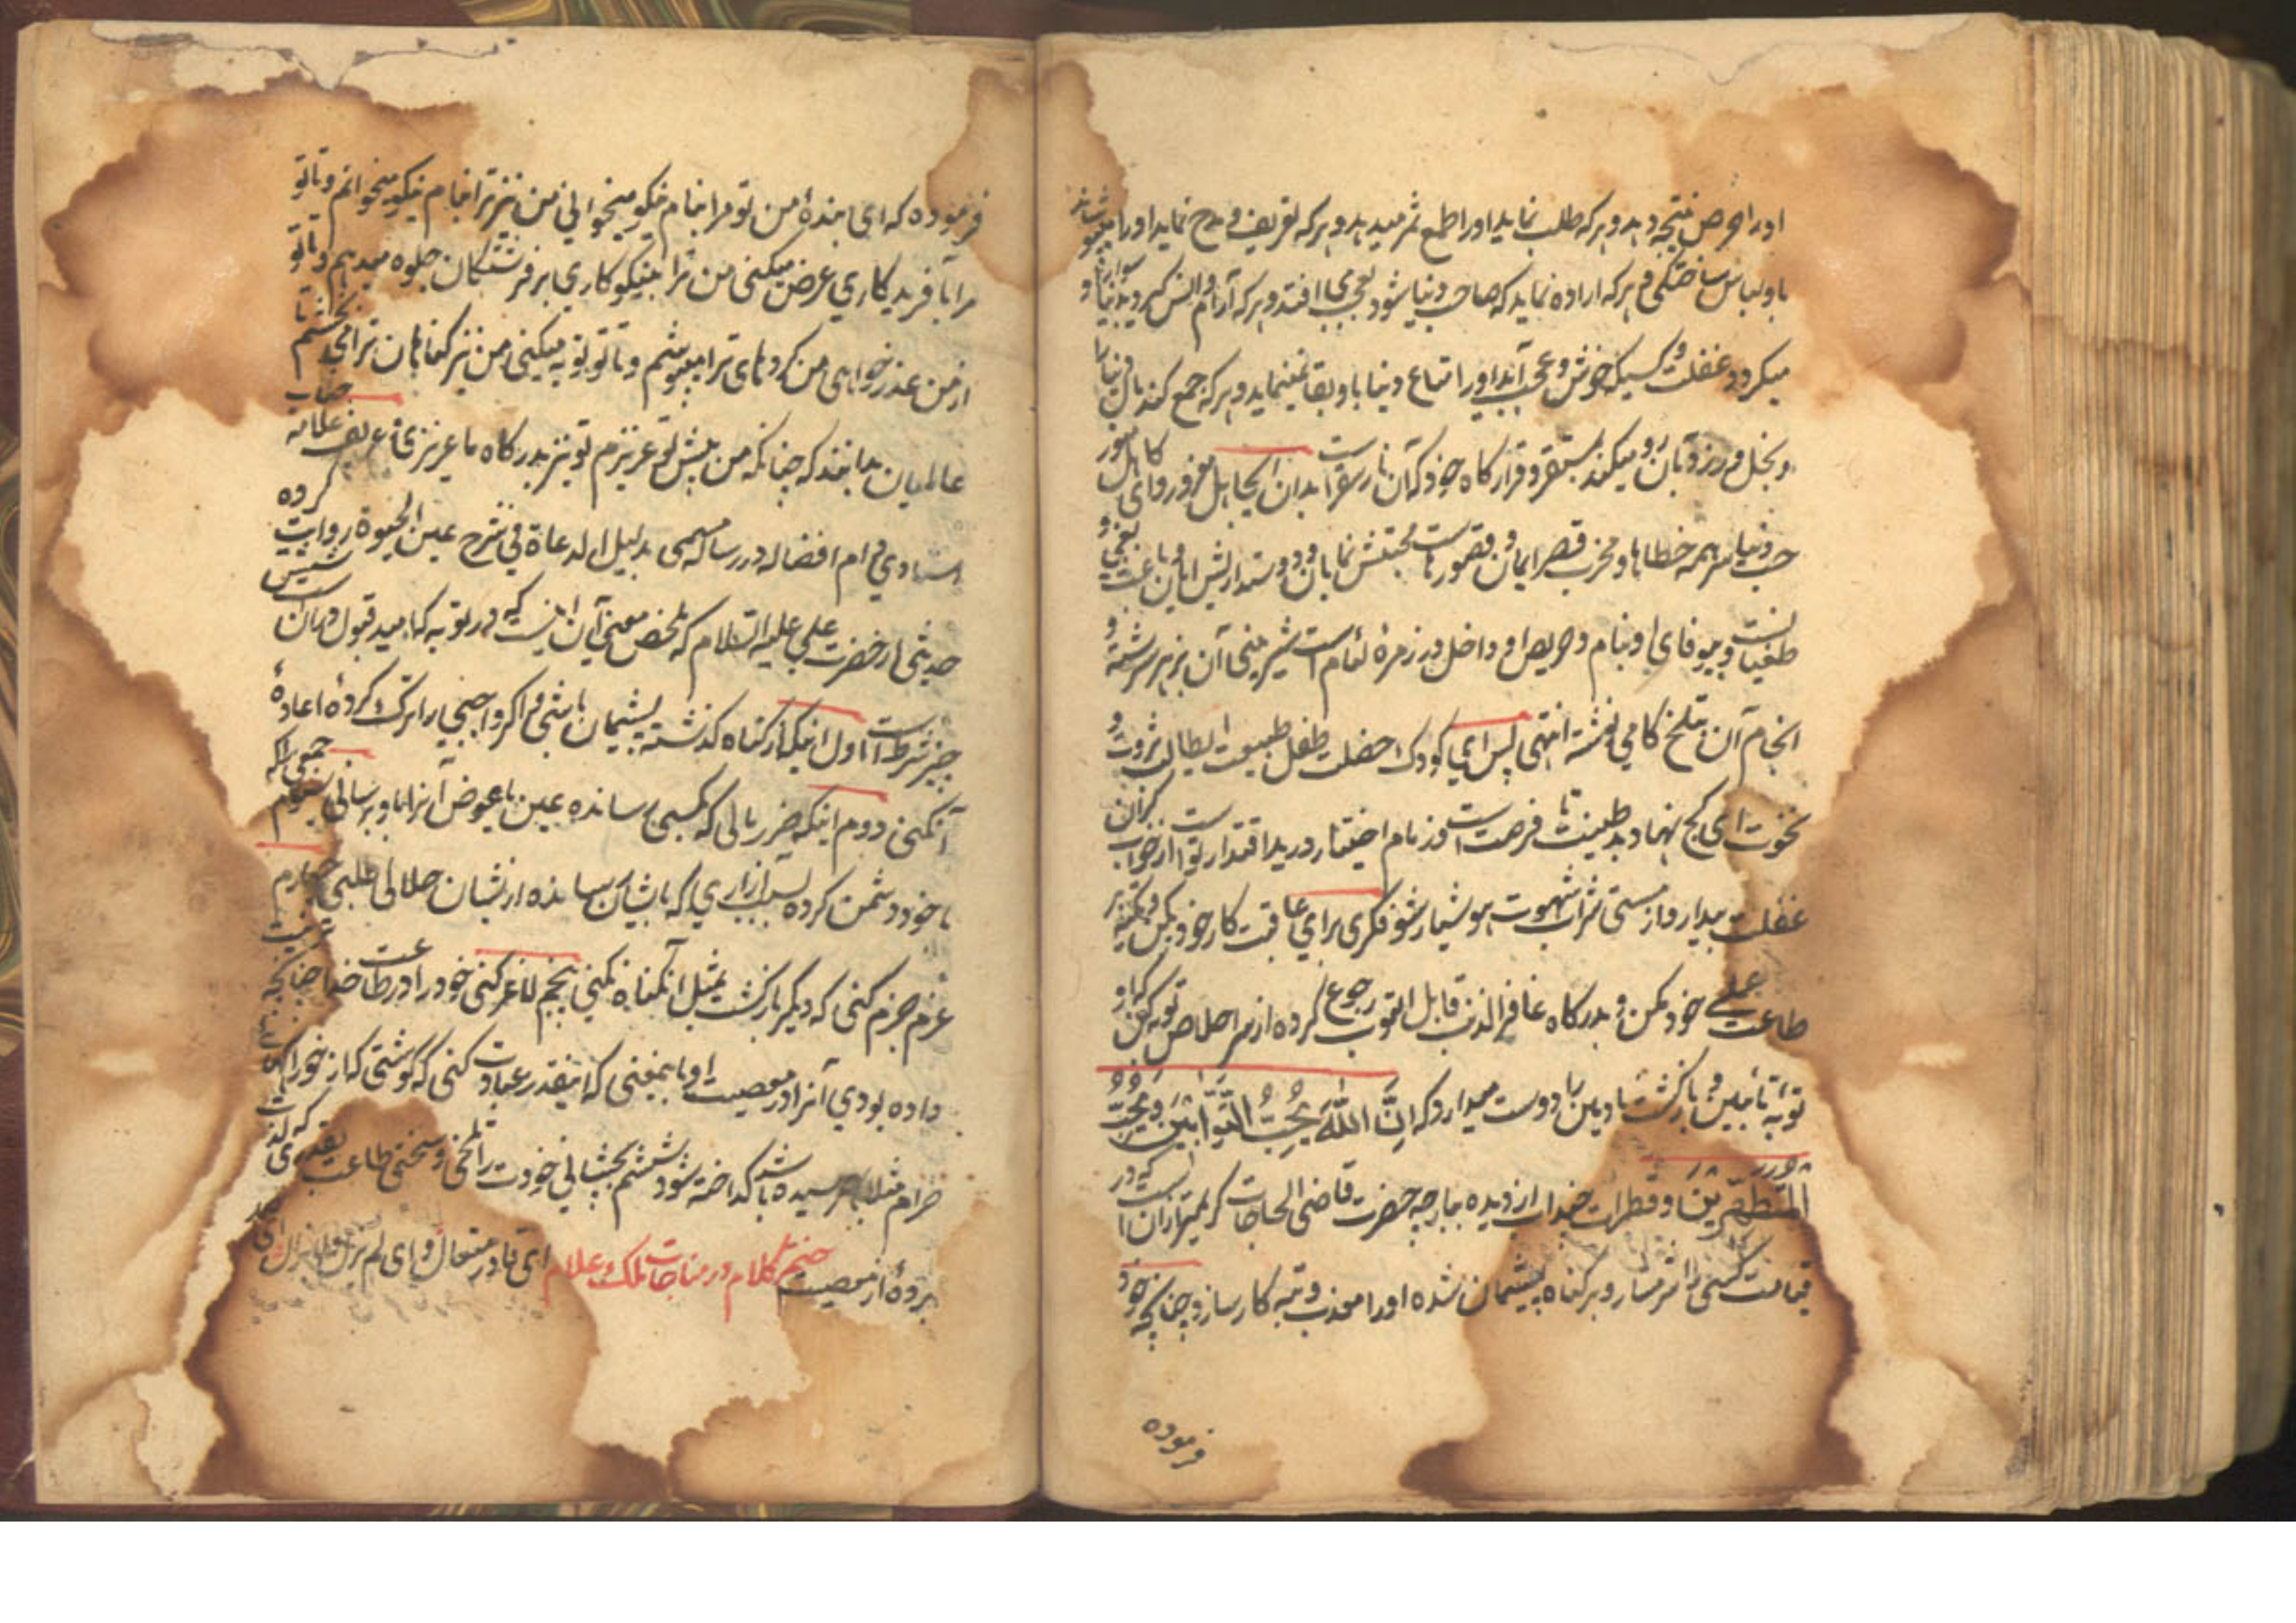 او را حرص نتیجه دهد و هر که طلب نماید او را طمع ثمر میدهد و هر که تعریف و مدح نماید او را میپوشاند
باو لباس ساختگی و هر که اراده نماید که صاحب دنیا شود بعجب می افتد و هر که آرام و انس گیرد بدنیا سوار و
میگردد غفلت و کسیکه خوش و عجب آید او را متاع دنیا باو بقا نمینماید و هر که جمع کند مال دنیا را
و بخل ورزد بآن رو میکند بمستقر و قرارگاه خود که آن نار است بدان ایجاهل مغرور و ای کاهل
حب دنیا سر همه خطاها و مخرب قصر ایمان و محبتش و دوستداریش باعث
طغیان و بیوفائی او بنام و حریص او داخل در زمره لئام است شیرینی آن بزهر سرشته و
انجام آن بتلخ کامی نوشته انتهی پس ای کودک خصلت طفل طبیعت ایطالب ثروت و
نخوت ای کج نهاد بد طینت تا فرصت است و زمام اختیار در ید اقتدار تو از خواب گران
غفلت بیدار و از مستی شراب شهوت هوشیار شو فکری برای عاقبت کار خود بکن و تکیه بر
طاعت عملی خود مکن و بدرگاه غافر الذنب قابل التوب رجوع کرده از سر اخلاص توبه کن که او
توبه تائبین و بازگشت نادمین را دوست میدارد که اِنَّ اللّٰهَ یُحِبُّ التَّوّابینَ وَ یُحِبُّ
المُتَطَهِّرینَ و قطرات از دیده ببار چه حضرت قاضی الحاجات کریمتر از آن است که در
قیامت کسی را شرمسار و بر گناه پشیمان شده او را معذب و تبه کار سازد چنانچه خود
فرموده
فرموده که ای بنده من تو مرا بنام نیکو میخوانی من نیز ترا بنام نیکو میخوانم و تا تو
مرا بآفریدکاری عرض میکنی من ترا بنیکوکاری بر فرشتگان جلوه میدهم و تا تو
از من عذر خواهی من کردهای ترا میپوشم و تا تو توبه میکنی من نیز گناهان ترا می بخشم تا
عالمیان بدانند که چنانکه من پیش تو عزیزم تو نیز بدرگاه ما عزیزی جناب علامه
استادی دام افضاله در رساله مسمی بدلیل الدعاة فی شرح عین الحیوة روایت کرده
حدیثی از حضرت علی علیه السلام که ملخص معنی آن اینست که در توبه که امید قبول در آن است شش
چیز شرط است اول اینکه از گناه گذشته پشیمان باشی و اگر واجبی را ترک کردهٔ اعادهٔ
آن کنی دوم اینکه ضرر مالی که بکسی رسانده عین یا عوض آنرا باو برسانی سیوم جمعی را که
با خود دشمن کرده بسبب آزاری که بایشان رسانده از ایشان حلالی طلبی چهارم
عزم جزم کنی که دیگر بازگشت بمثل آن گناه نکنی پنجم لاغر کنی خود را در طاعت خدا چنانچه
داده بودی آنرا در معصیت او باینمعنی که اینقدر عبادت کنی که گوشتی که از خوراک
حرام مثلا بهم رسیده باشد گداخته شود ششم بچشانی خودت را تلخی و سختی طاعت بقدری که لذت
بردهٔ از معصیت ختم کلام در مناجات ملک علام ای قادر متعال و ای لم یزل و لا یزال